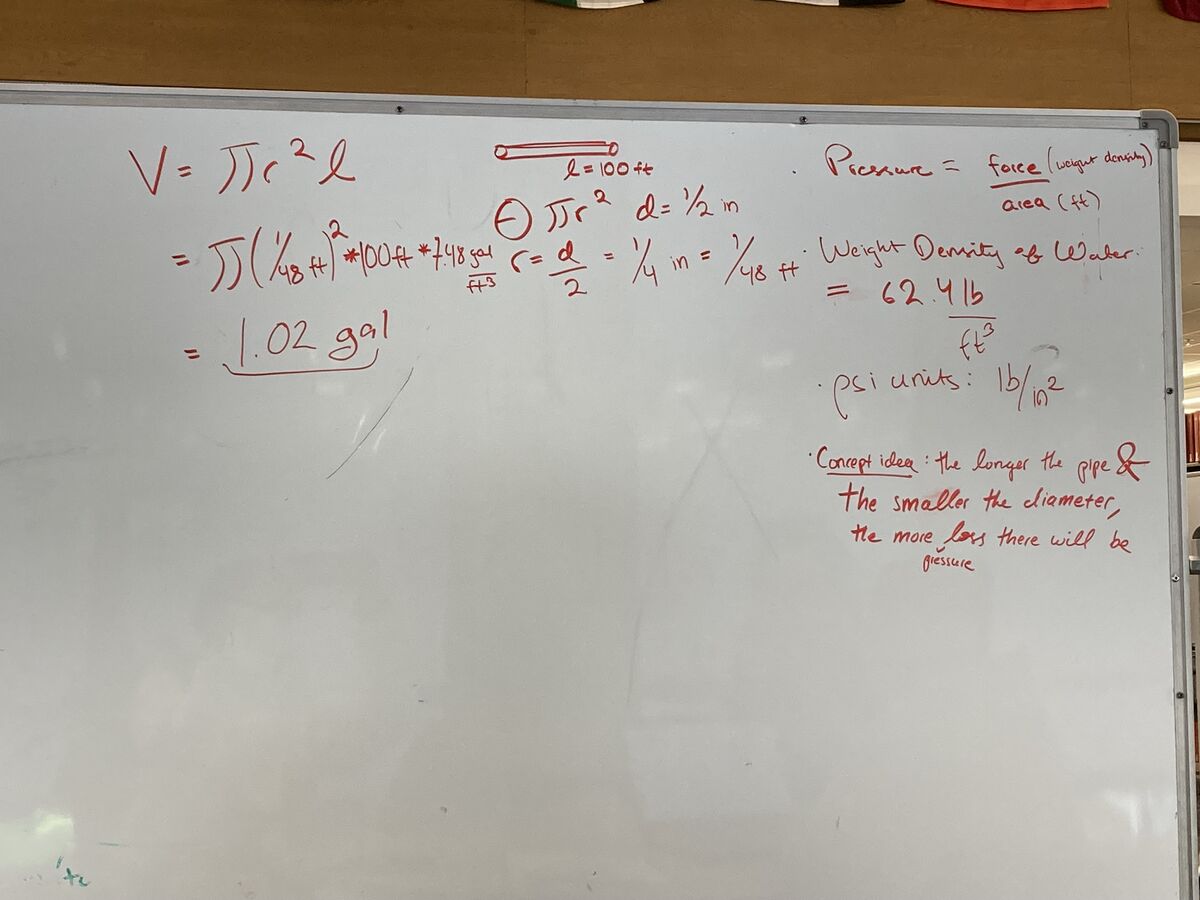 V = πr² l
= π(1/48 ft)² * 100ft * 7.48 gal/ft³
= 1.02 gal
l = 100 ft
πr² d = 1/2 in
r = d/2 = 1/4 in = 1/48 ft
· Pressure = force (weight density)
area (ft)
· Weight Density of Water:
= 62.4 lb
ft³
· psi units: lb/in²
· Concept idea: the longer the pipe &
the smaller the diameter,
the more loss there will be
pressure